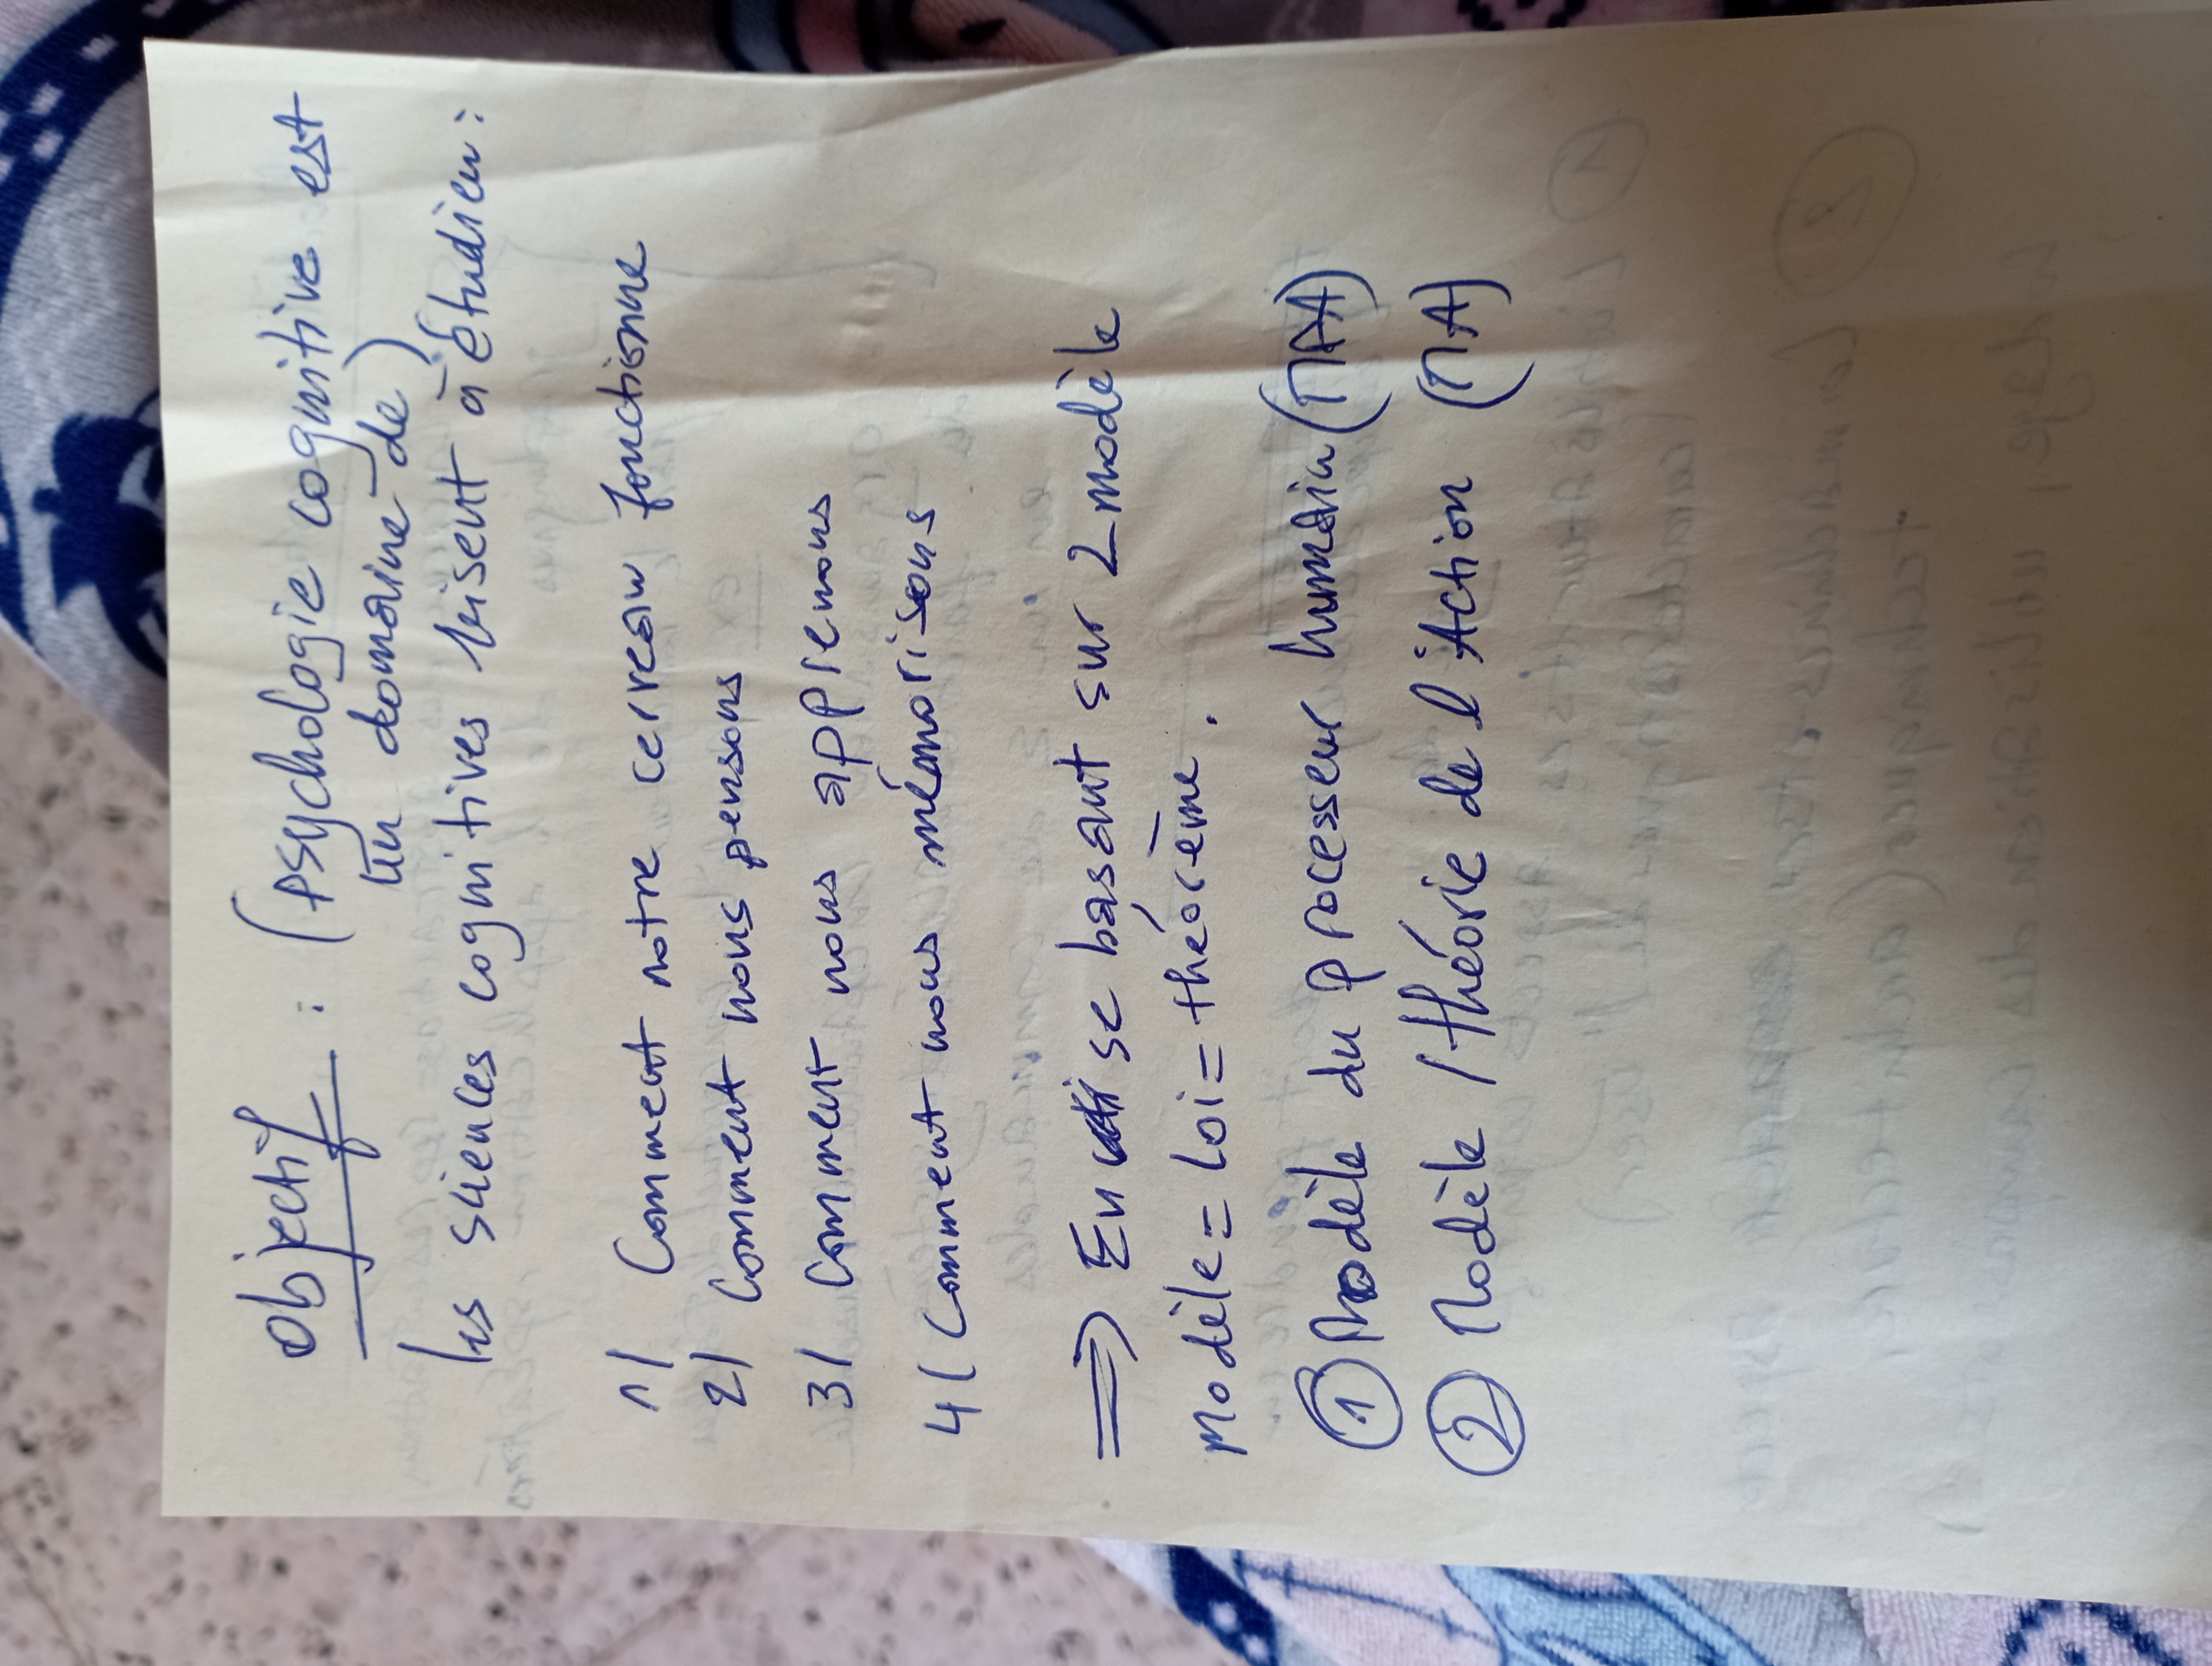 Objectif : (Psychologie cognitive est
un domaine de)
les sciences cognitives visent à étudier :
1/ Comment notre cerveau fonctionne
2/ Comment nous pensons
3/ Comment nous apprenons
4/ Comment nous mémorisons
=> En se basant sur 2 modèle
Modèle = Loi = théorème.
① Modèle du processeur humain
② Modèle / théorie de l'Action (MA)